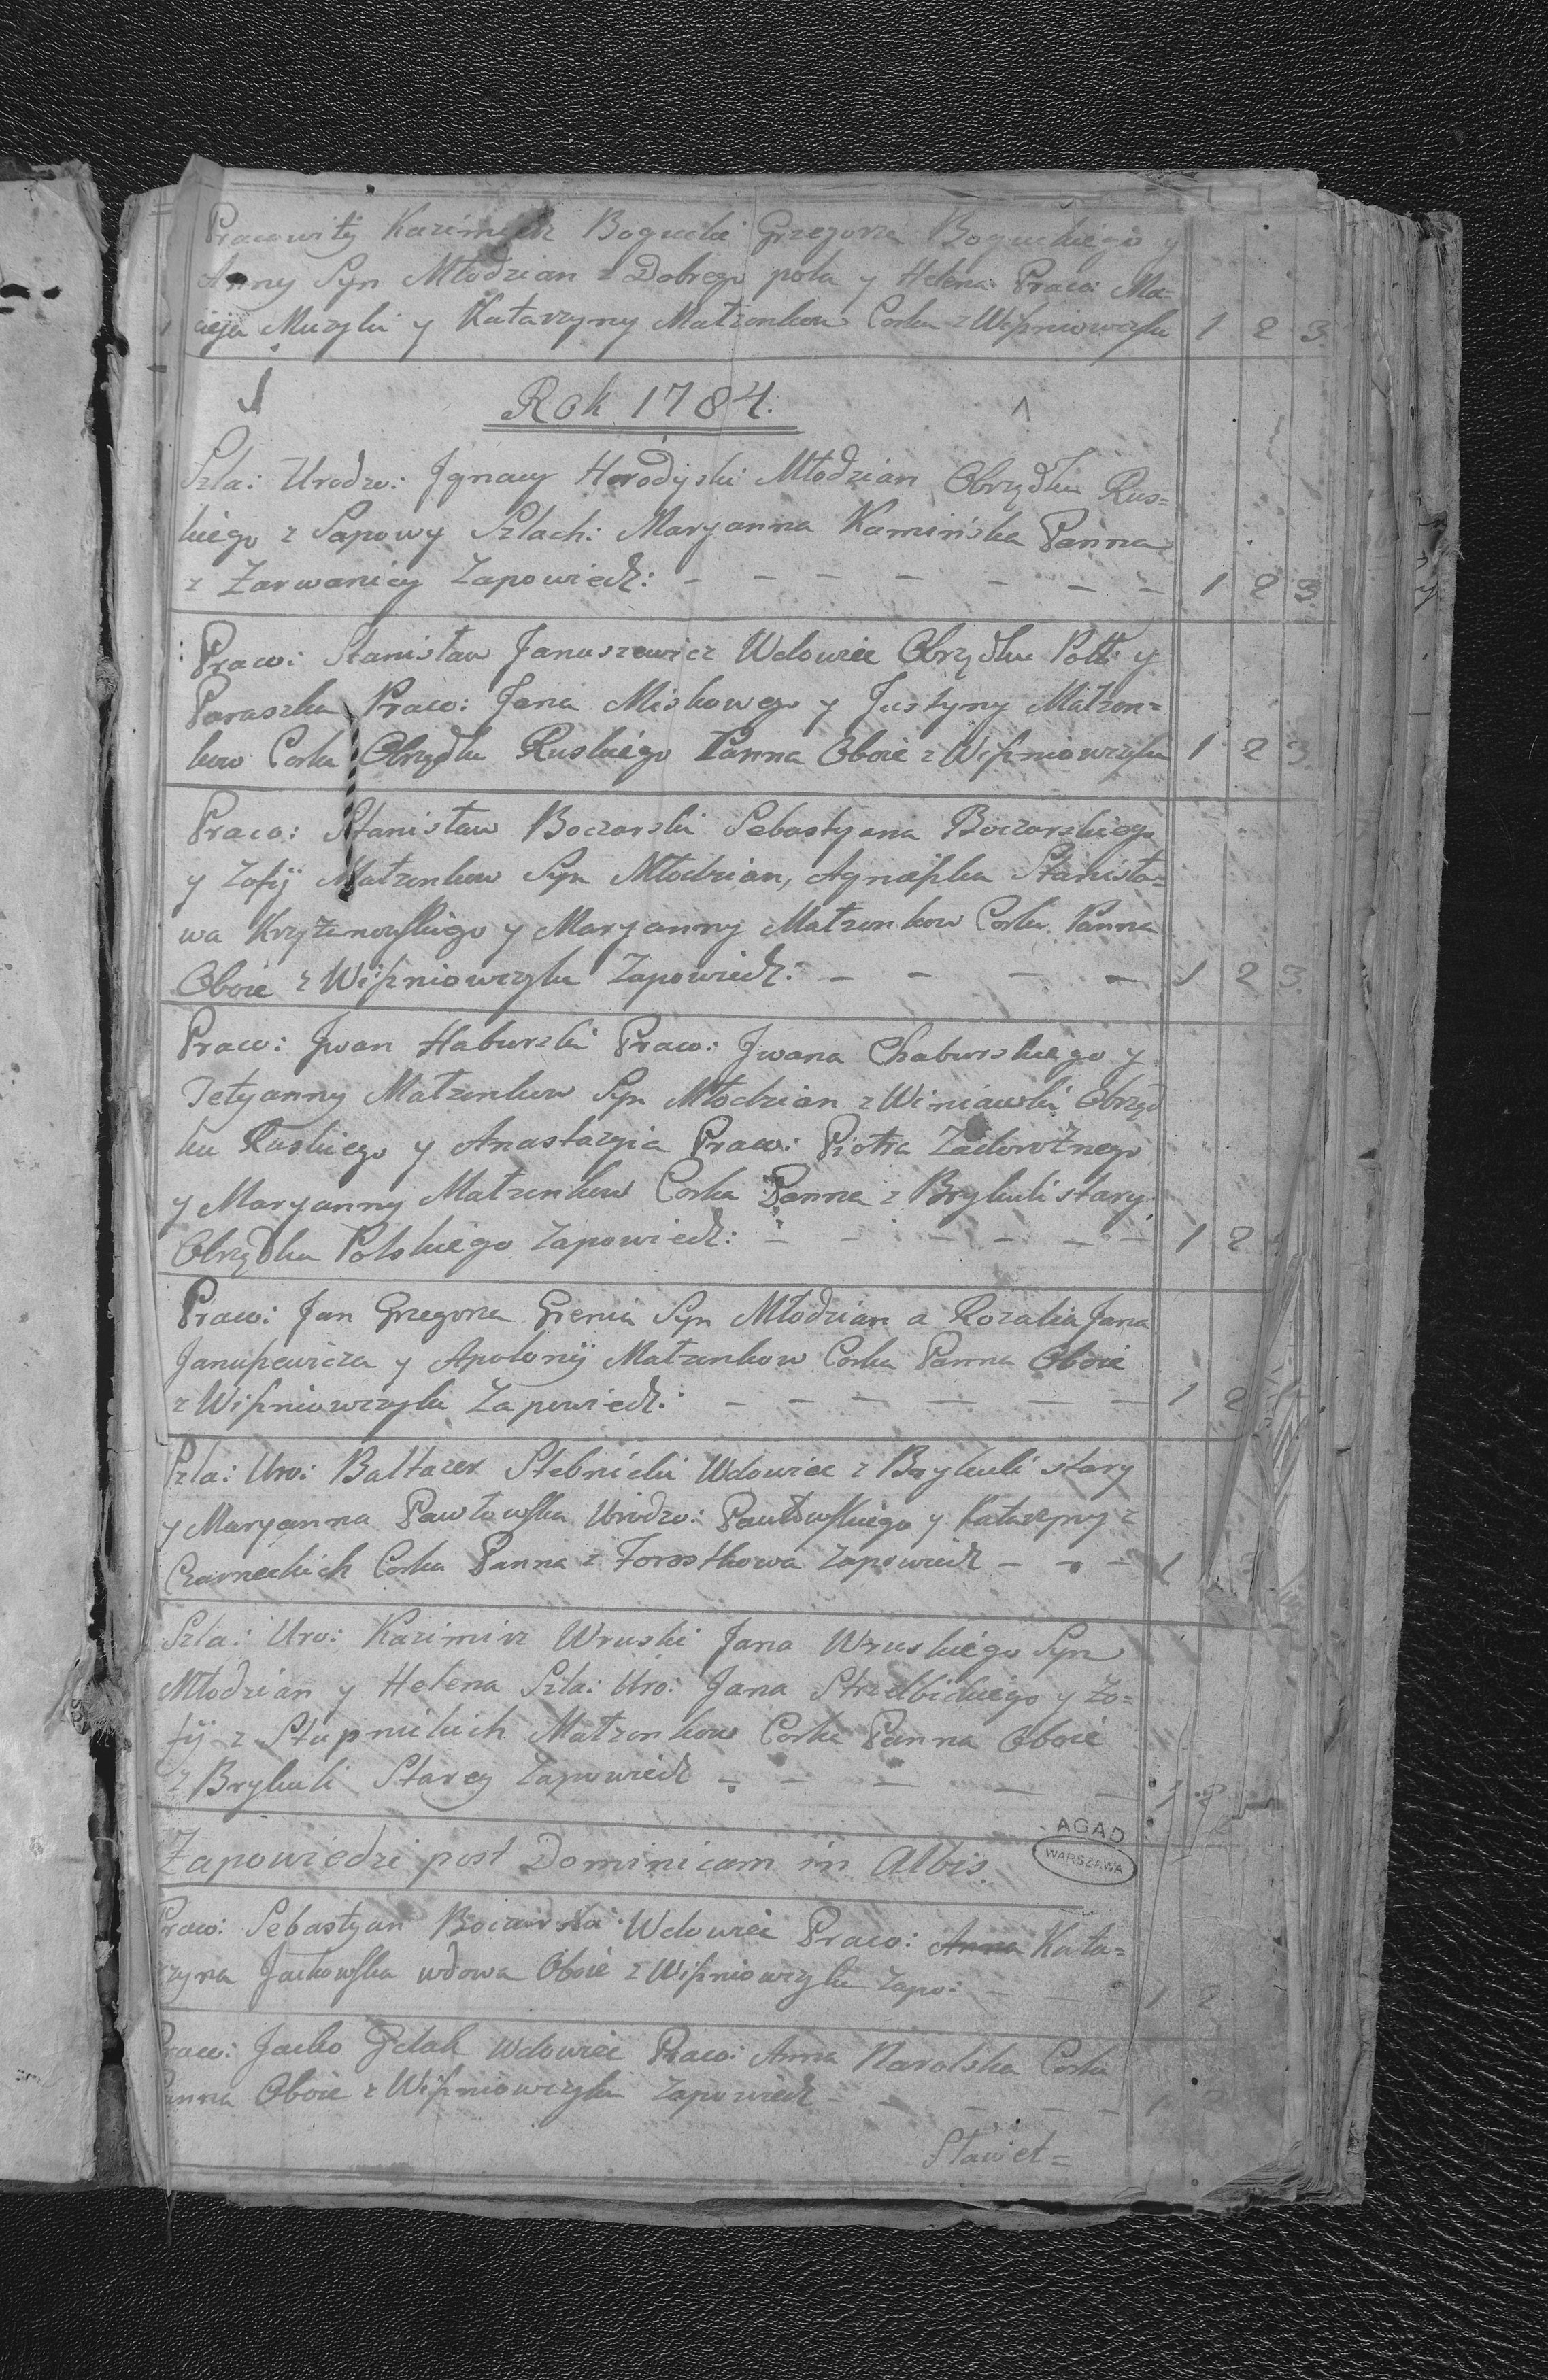 Pracowity Kazimierz Bogucki Grzegorza Boguckiego y
Anny Syn Młodzian z Dobrego pola y Helena Praco: Ma=
cieja Muzyki y Katarzyny Małzonkow Corka z Wiszniowczyka 1 2 3.
Rok 1784.
Szla: Urodzo: Jgnacy Horodyski Młodzian Obrządku Rus=
kiego z Sapowy Szlach: Maryanna Kamińska Panna
z Zarwanicy Zapowiedz: – – – – – – – 1 2 3.
Praco: Stanisław Januszewicz Wdowiec Obrządku Pols: y
Paraszka Praco: Jana Miskowego y Justyny Małzon=
kow Corka Obrządku Ruskiego Panna Oboie z Wiszniowczyka 1 2 3.
Praco: Stanisław Boczarski Sebastyana Boczarskiego
y Zofij Małzonkow Syn Młodzian, Agnieszka Stanisła=
wa Krzyżanowskiego y Maryanny Małzonkow Corka Panna
Oboie z Wiszniowczyka Zapowiedz: – – – – 1 2 3.
Praco: Jwan Haburski Praco: Jwana Chaburskiego y
Tetyanny Małzonkow Syn Młodzian z Winiawki Obrząd
ku Ruskiego y Anastazyia Praco: Piotra Zadorożnego
y Maryanny Małzonkow Corka Panna z Brykuli stary
Obrządku Polskiego Zapowiedz: – – – – – – 1 2
Praco: Jan Grzegorza Grenia Syn Młodzian a Rozalia Jana
Januszewicza y Apolonij Małzonkow Corka Panna Oboie
z Wiszniowczyka Zapowiedz: – – – – – – 1 2
Szla: Uro: Baltazer Stebnicki Wdowiec z Brykuli stary
y Maryanna Pawłowska Urodzo: Pawłowskiego y Katarzyny z
Czarneckich Corka Panna z Forostkowa Zapowiedz – – – 1
Szla: Uro: Kazimirz Wruski Jana Wruskiego Syn
Młodzian y Helena Szla: Uro: Jana Strzelbickiego y Zo=
fij z Stupnickich Małzonkow Corka Panna Oboie
z Brykuli Starey Zapowiedz – – – – – 1 2
AGAD
WARSZAWA
Zapowiedzi post Dominicam in Albis.
Praco: Sebastyan Boczarski Wdowiec Praco: Anna Kata=
rzyna Jackowska wdowa Oboie z Wiszniowczyka Zapo: – – – 1 2
Praco: Jacko Wdowiec Praco: Anna Narolska Corka
Panna Oboie z Wiszniowczyka Zapowiedz – – – – – 1
Sławet=